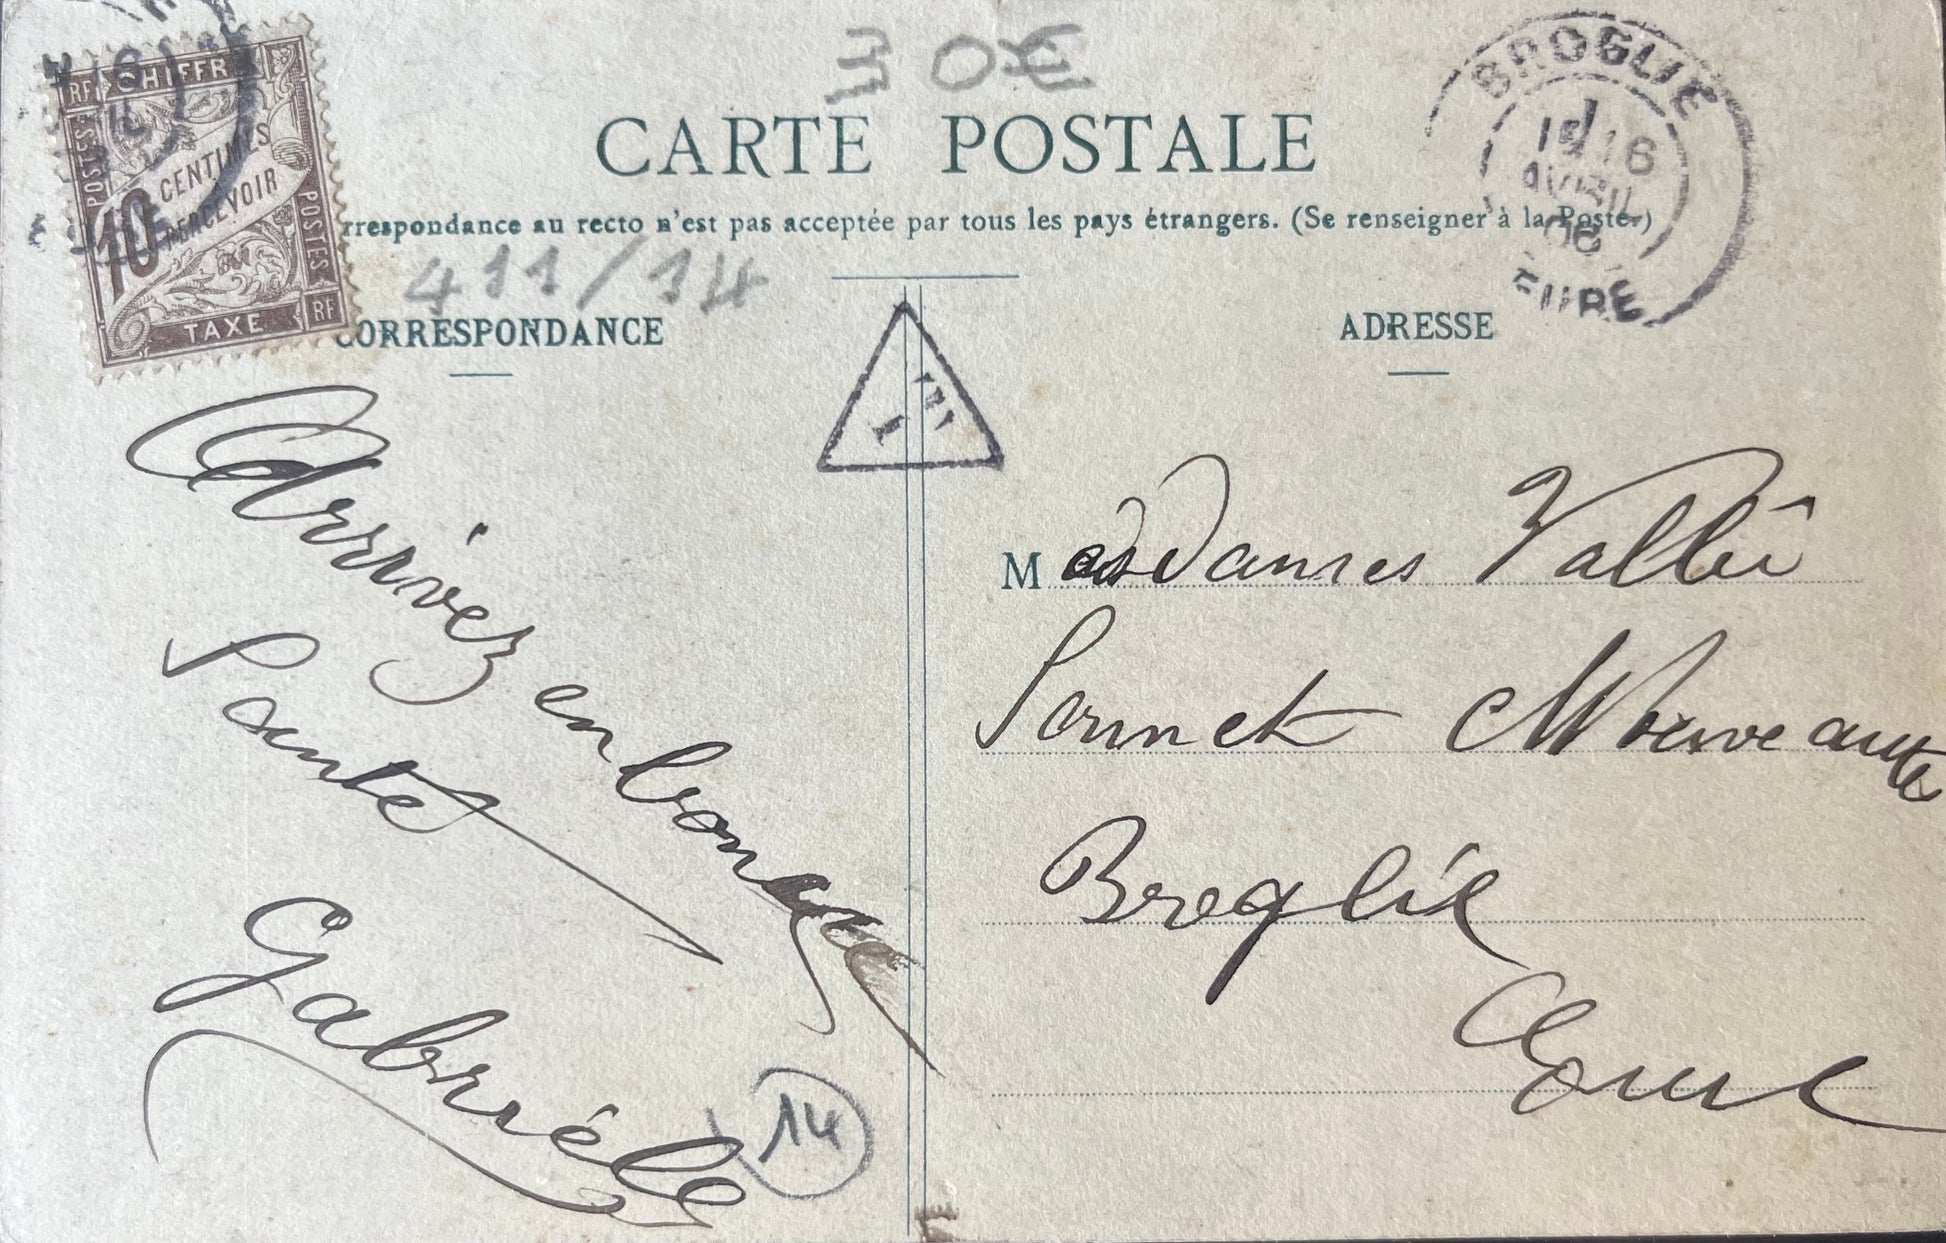 30€
RF CHIFFRE
POSTES
10 CENTIMES
PERCEVOIR
POSTES
TAXE RF
CARTE POSTALE
rrespondance au recto n'est pas acceptée par tous les pays étrangers. (Se renseigner à la Poste.)
BROGLIE
16
AVRIL
06
EURE
411/14
CORRESPONDANCE
Arrivez en bonne
Santé
Gabrièlle
14
T
ADRESSE
Mesdames Vallée
Sonnet
Broglie
Eure